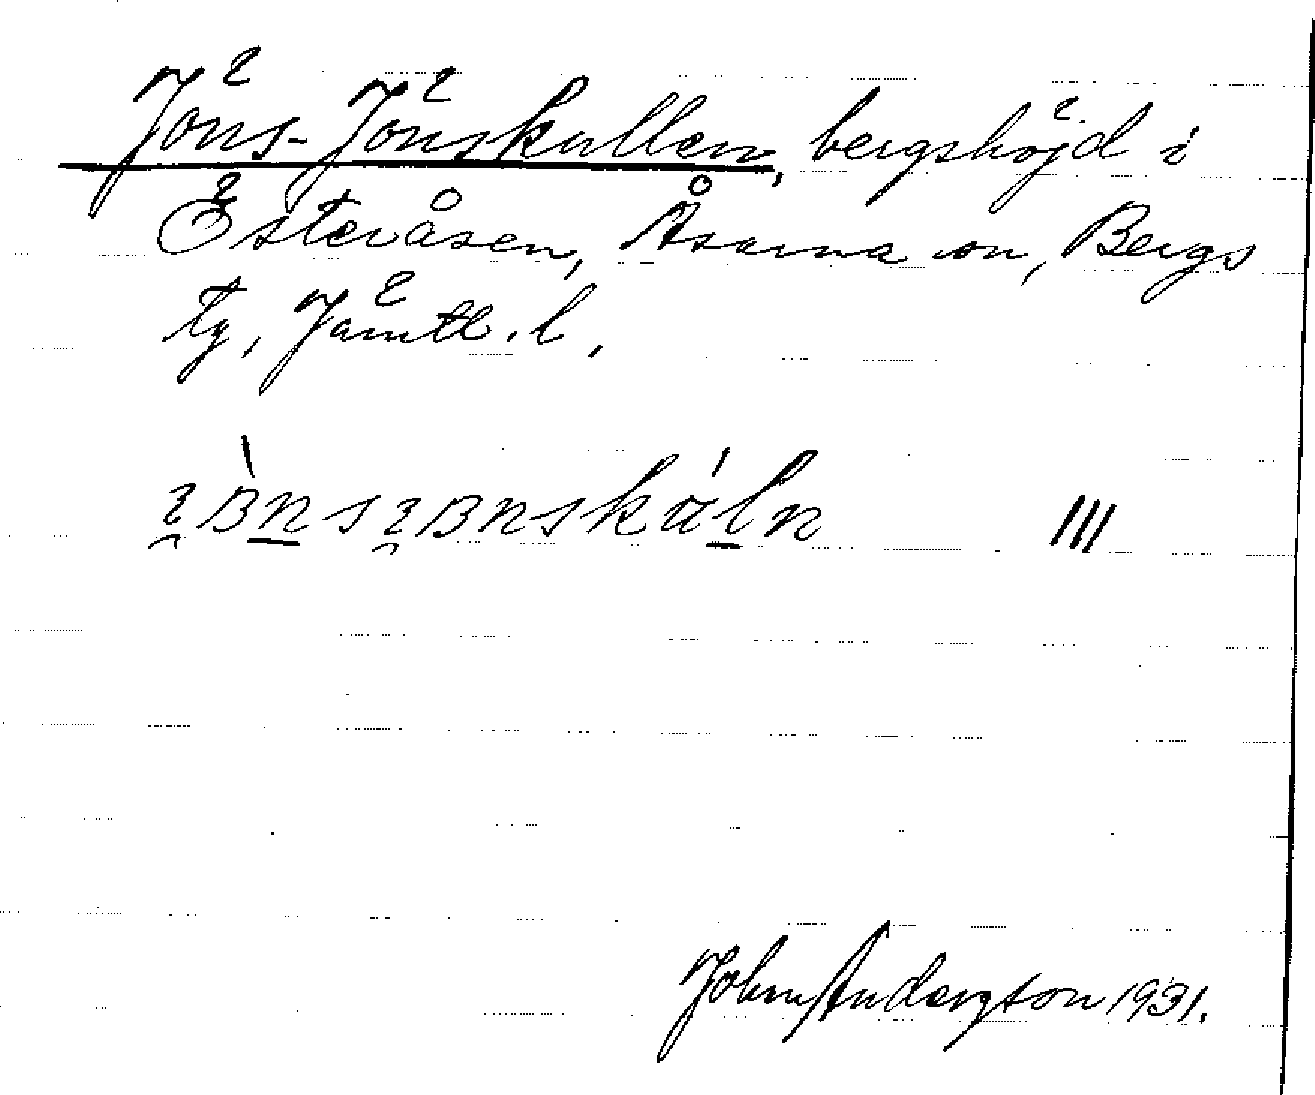 Jöns-Jönskullen, bergshöjd i
Österåsen, Åsarna sn, Bergs
tg, Jämtl. l.
III
John Andersson 1931.